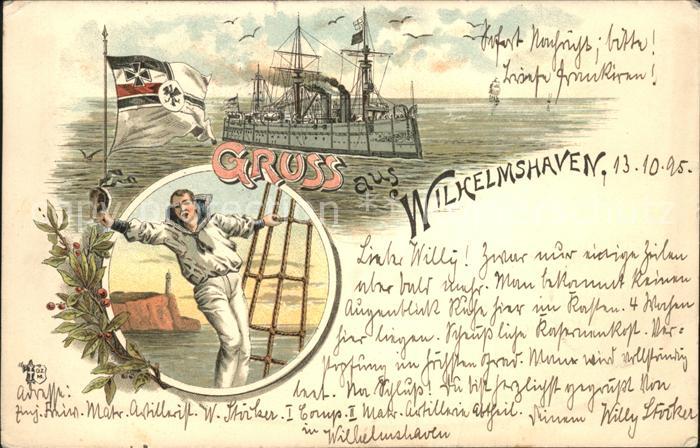 Sofort Nachricht, bitte!
Briefe frankiren!
GRUSS aus WILHELMSHAVEN, 13.10.95.
Lieber Willy! Zwar nur einige Zeilen
aber bald mehr. Man bekommt keinen
Augenblick Ruhe hier im Kasten. 4 Wochen
hier liegen. Scheußliche Kasernenkost. Ver-
stopfung im höchsten Grad. Mann wird vollständig
Na Schluß! Du bist herzlichst gegrüßt von
Deinem Willy Stöcker
Adresse:
Einj. Freiw. Matr. Artillerist. W. Stöcker. I Comp. II Matr. Artillerie Abtheil.
in Wilhelmshaven